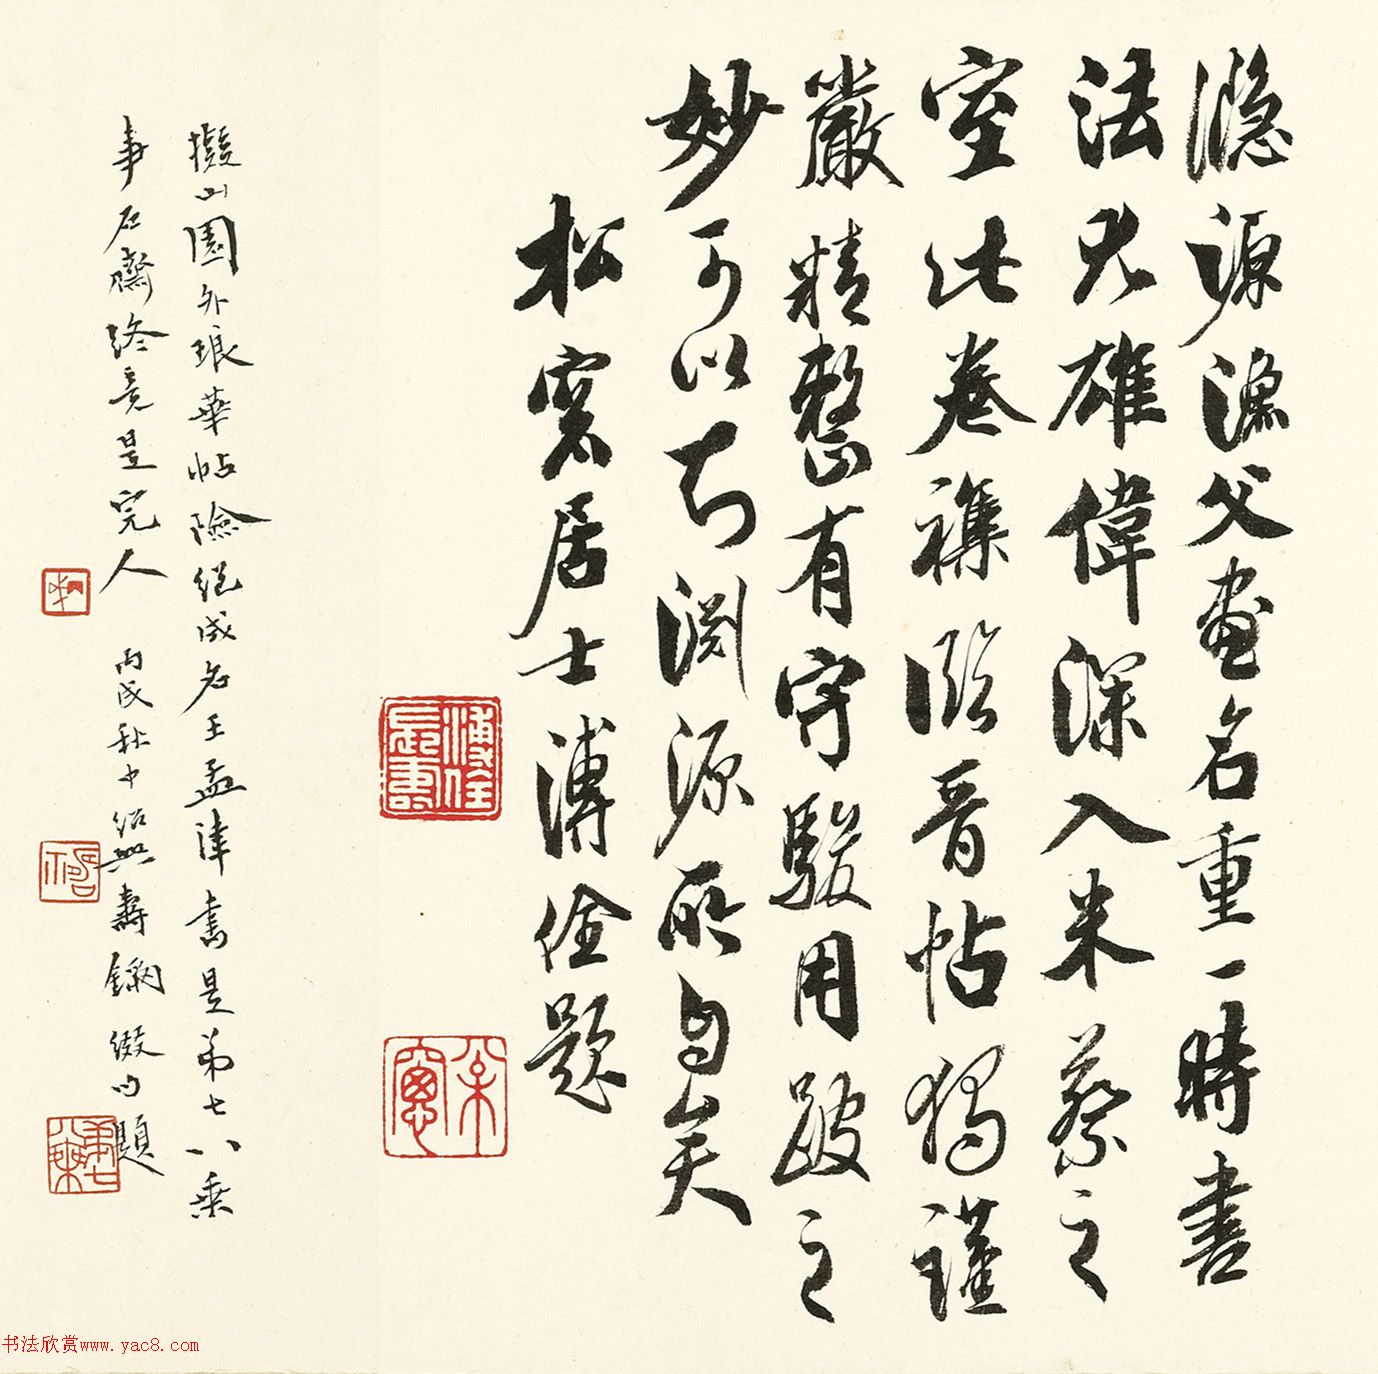 隱源漁父畫名重一時書
法尤雄偉深入米蔡之
室此卷襍臨晉帖獨謹
嚴精整有守駿用跛之
妙可以知淵源所自矣
松窗居士溥佺題
擬山園外琅華帖險絕成名王孟津書是弟七八乘
事石齋終竟是完人
丙戌秋中紹興壽鏻綴句題
溥佺長壽
松窗
书法欣赏www.yac8.com